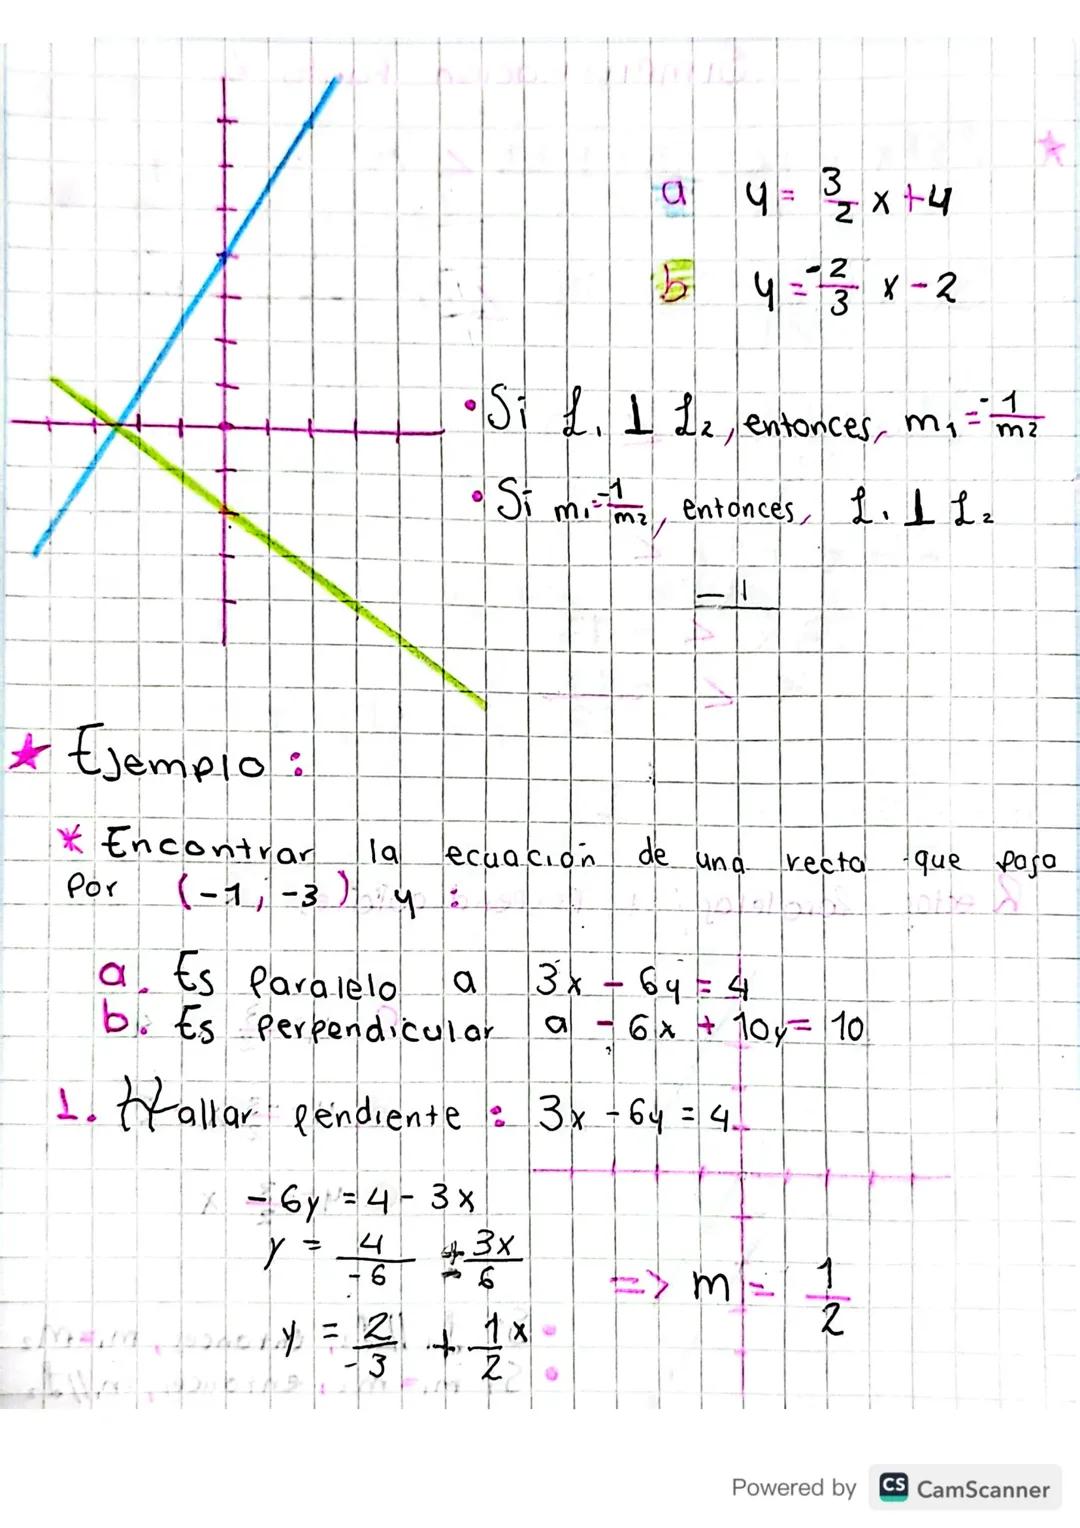 a y = 3/2 x + 4
b y = -2/3 x - 2
• Si L₁ ⊥ L₂, entonces, m₁ = -1/m₂
• Si m₁ = -1/m₂, entonces, L₁ ⊥ L₂
-1
★ Ejemplo :
* Encontrar la ecuación de una recta que pasa
Por (-1, -3) y :
a. Es Paralelo a 3x - 6y = 4
b. Es Perpendicular a - 6x + 10y = 10
1. Hallar pendiente : 3x - 6y = 4
- 6y = 4 - 3x
y = 4/-6 + 3x/6
=> m = 1/2
y = 2/-3 + 1/2 x
Powered by CS CamScanner